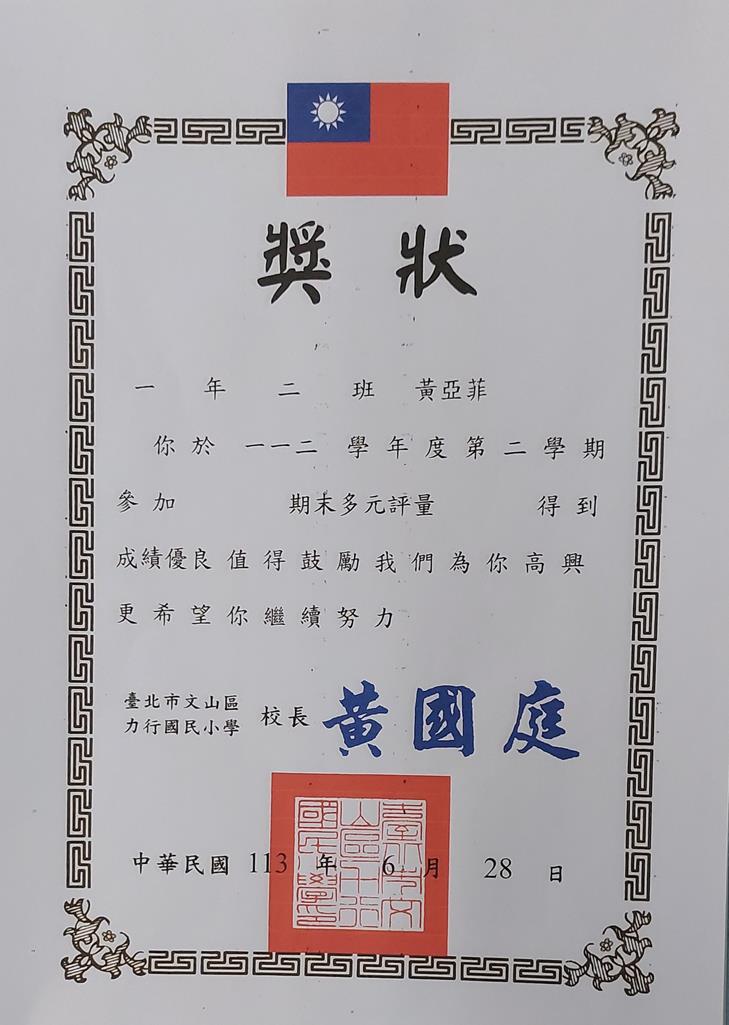 獎狀
一年二班 黃亞菲
你於 一一二 學年度第二學期
參加 期末多元評量 得到
成績優良值得鼓勵我們為你高興
更希望你繼續努力
臺北市文山區
力行國民小學 校長 黃國庭
中華民國 113 年 6 月 28 日